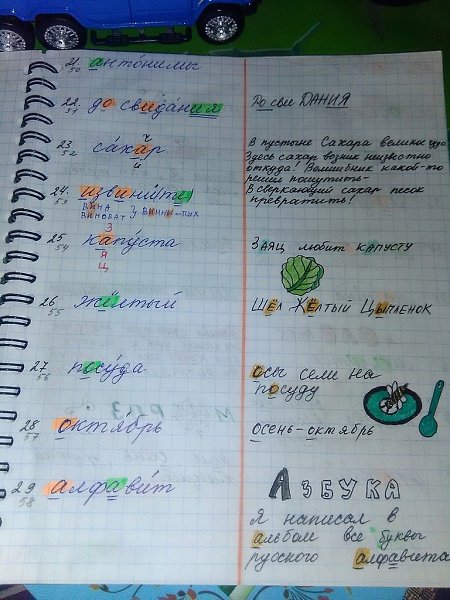 21 антонимы
50
22. до свидания До сви ДАНИЯ
51
23 сахар
52
ч
й
В пустыне Сахара велика чуда.
Здесь сахар возник неизвестно
откуда! Волшебник какой-то
решил пошутить-
В сверкающий сахар песок
превратить!
24. извини(те)
53
ВИНА
ВИНОВАТ } ВИННИ-ПУХ
25 капуста ЗАЯЦ любит КАПУСТУ
54
З
Я
Ц
26 жёлтый ШЁЛ ЖЁЛТЫЙ ЦЫПЛЕНОК
55
27. посуда Осы сели на
56 посуду
28 октябрь Осень-октябрь
57
29 алфавит АЗБУКА
58
Я написал в
альбом все буквы
русского алфавита